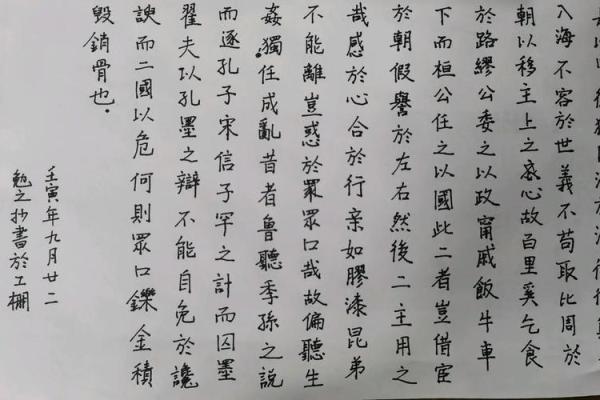 入海不容於世義不苟取比周於
朝以移主上之心故百里奚乞食
於路繆公委之以政甯戚飯牛車
下而桓公任之以國此二者豈借宦
於朝假譽於左右然後二主用之
哉感於心合於行亲如膠漆昆弟
不能離豈惑於眾眾口哉故偏聽生
姦獨任成亂昔者魯聽季孫之說
而逐孔子宋信子罕之計而囚墨
翟夫以孔墨之辯不能自免於讒
諛而二國以危何則眾口鑠金積
毀銷骨也.
壬寅年九月廿二
勉之抄書於工棚